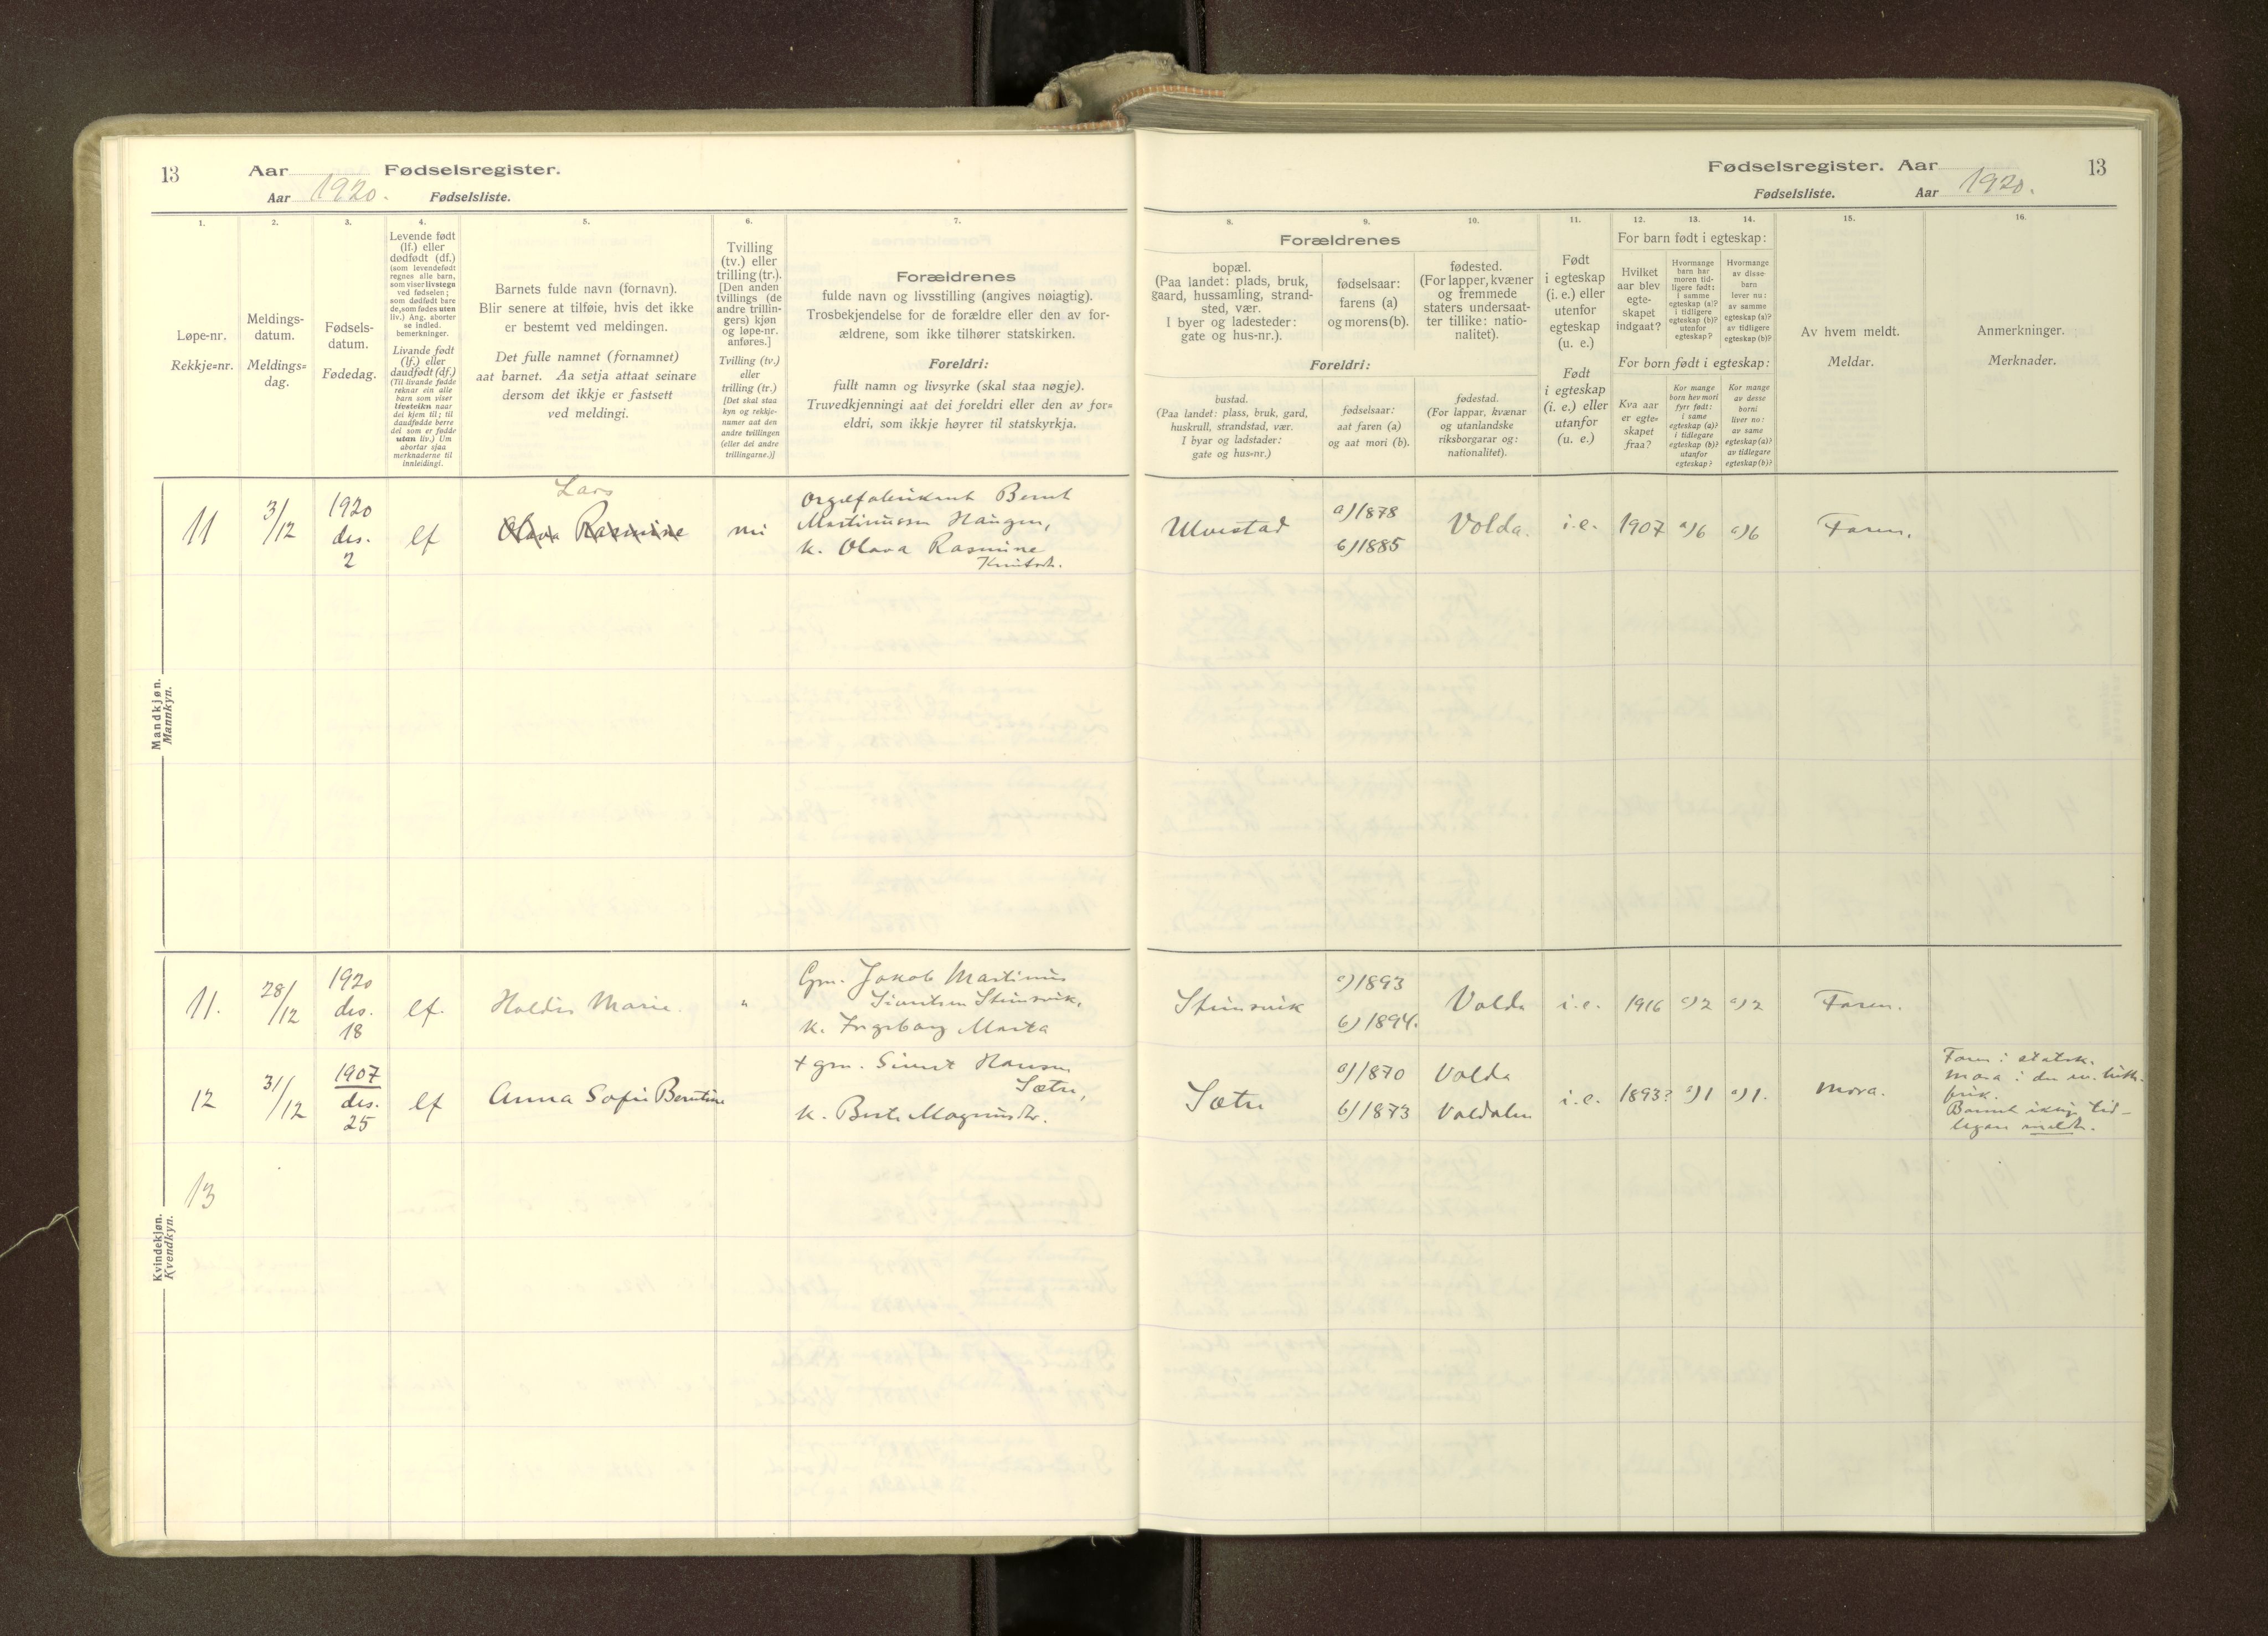 13 Aar Fødselsregister.
Aar 1920. Fødselsliste.
1.
2.
3.
4.
5.
6.
7.
Løpe-nr.
Rekkje=nr.
Meldings-
datum.
Meldings=
dag.
Fødsels-
datum.
Fødedag.
Levende født
(lf.) eller
dødfødt (df.)
(som levendefødt
regnes alle barn,
som viser livstegn
ved fødselen;
som dødfødt bare
de, som fødes uten
liv.) Ang. aborter
se indled.
bemerkninger.
Livande født
(lf.) eller
daudfødt (df.)
(Til livande fødde
reknar ein alle
barn som viser
livsteikn naar
dei kjem til; til
daudfødde berre
dei som er fødde
utan liv.) Um
abortar sjaa
merknaderne til
innleidingi.
Barnets fulde navn (fornavn).
Blir senere at tilføie, hvis det ikke
er bestemt ved meldingen.
Det fulle namnet (fornamnet)
aat barnet. Aa setja attaat seinare
dersom det ikkje er fastsett
ved meldingi.
Tvilling
(tv.) eller
trilling (tr.).
[Den anden
tvillings (de
andre trillin-
gers) kjøn
og løpe-nr.
anføres.]
Tvilling (tv.)
eller
trilling (tr.)
[Det skal staa
kyn og rekkje-
numer aat den
andre tvillingen
(eller dei andre
trillingarne.)]
Forældrenes
fulde navn og livsstilling (angives nøiagtig).
Trosbekjendelse for de forældre eller den av for-
ældrene, som ikke tilhører statskirken.
Foreldri:
fullt namn og livsyrke (skal staa nøgje).
Truvedkjenningi aat dei foreldri eller den av for=
eldri, som ikkje høyrer til statskyrkja.
Mandkjøn.
Mannkyn.
11
3/12
1920
des.
2
lf
Lars
Olava Rasmine
nei
Orgelfabrikant Bernt
Martinussen Haugen,
k. Olava Rasmine
Knutsdt.
Kvindekjøn.
Kvendkyn.
11.
28/12
1920
des.
18
lf.
Haldis Marie.
"
Gm. Jakob Martinus
Sivertsen Steinsvik,
k. Ingeborg Marta
12
31/12
1907
des.
25
lf
Anna Sofie Berntine
+ gm. Sivert Hansen
Sætre,
k. Berte Magnusdtr.
13
Fødselsregister. Aar 13
Fødselsliste. Aar 1920.
8.
9.
10.
11.
12.
13.
14.
15.
16.
Forældrenes
bopæl.
(Paa landet: plads, bruk,
gaard, hussamling, strand-
sted, vær.
I byer og ladesteder:
gate og hus-nr.).
fødselsaar:
farens (a)
og morens (b).
fødested.
(For lapper, kvæner
og fremmede
staters undersaat-
ter tillike: natio-
nalitet).
Foreldri:
bustad.
(Paa landet: plass, bruk, gard,
huskrull, strandstad, vær.
I byar og ladstader:
gate og hus=nr.)
fødselsaar:
aat faren (a)
og aat mori (b).
fødestad.
(For lappar, kvænar
og utanlandske
riksborgarar og:
nationalitet).
Født
i egteskap
(i. e.) eller
utenfor
egteskap
(u. e.)
Født
i egteskap
(i. e.) eller
utanfor
(u. e.)
For barn født i egteskap:
Hvilket
aar blev
egte-
skapet
indgaat?
Hvormange
barn har
moren tid-
ligere født:
i samme
egteskap (a)?
i tidligere
egteskap (b)?
utenfor
egteskap?
Hvormange
av disse
barn
lever nu:
av samme
egteskap (a)?
av tidligere
egteskap (b)?
For born født i egteskap:
Kva aar
er egte-
skapet
fraa?
Kor mange
born hev mori
fyrr født:
i same
egteskap (a)?
i tidlegare
egteskap (b)?
utanfor
egteskap?
Kor mange
av desse
borni
liver no:
av same
egteskap (a)?
av tidlegare
egteskap (b)?
Av hvem meldt.
Meldar.
Anmerkninger.
Merknader.
Ulvestad
a) 1878
b) 1885
Volda.
i.e.
1907
a) 6
a) 6
Faren.
Steinsvik
a) 1893
b) 1894.
Volda
i.e.
1916
a) 2
a) 2
Faren.
Sætre
a) 1870
b) 1873
Volda
Valdalen
i.e.
1893?
a) 1
a) 1.
Mora.
Faren i statsk.
mora i den ev. luth.
frik.
Barnet ikkje tid-
legare meldt.